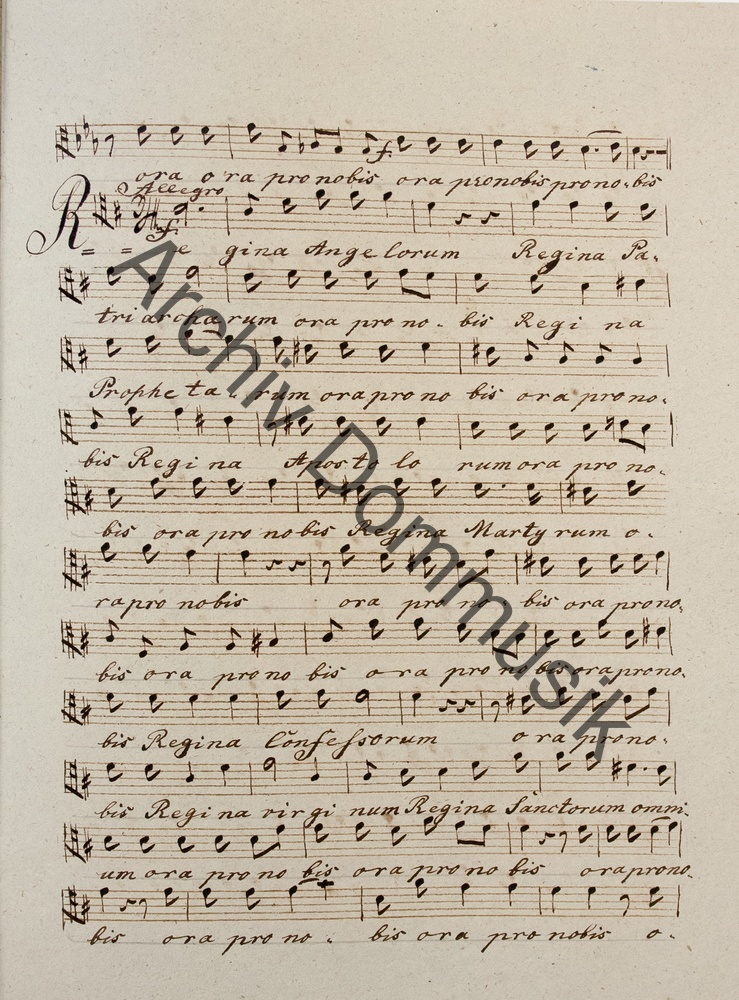 ora ora pronobis ora pronobis prono-bis
Allegro
f.
Re gina Angelorum Regina Pa-
triarcharum ora prono-bis Regina
Propheta-rum ora prono bis ora prono-
bis Regina Apostolo rum ora prono-
bis ora pro nobis Regina Martyrum o-
ra pro nobis ora pro no bis ora prono-
bis ora prono bis ora pro no bis ora prono-
bis Regina Confessorum ora prono-
bis Regina virginum Regina Sanctorum omni-
um ora pro no bis ora pro no bis ora prono-
bis ora pro no-bis ora pro nobis o-
Archiv Dommusik